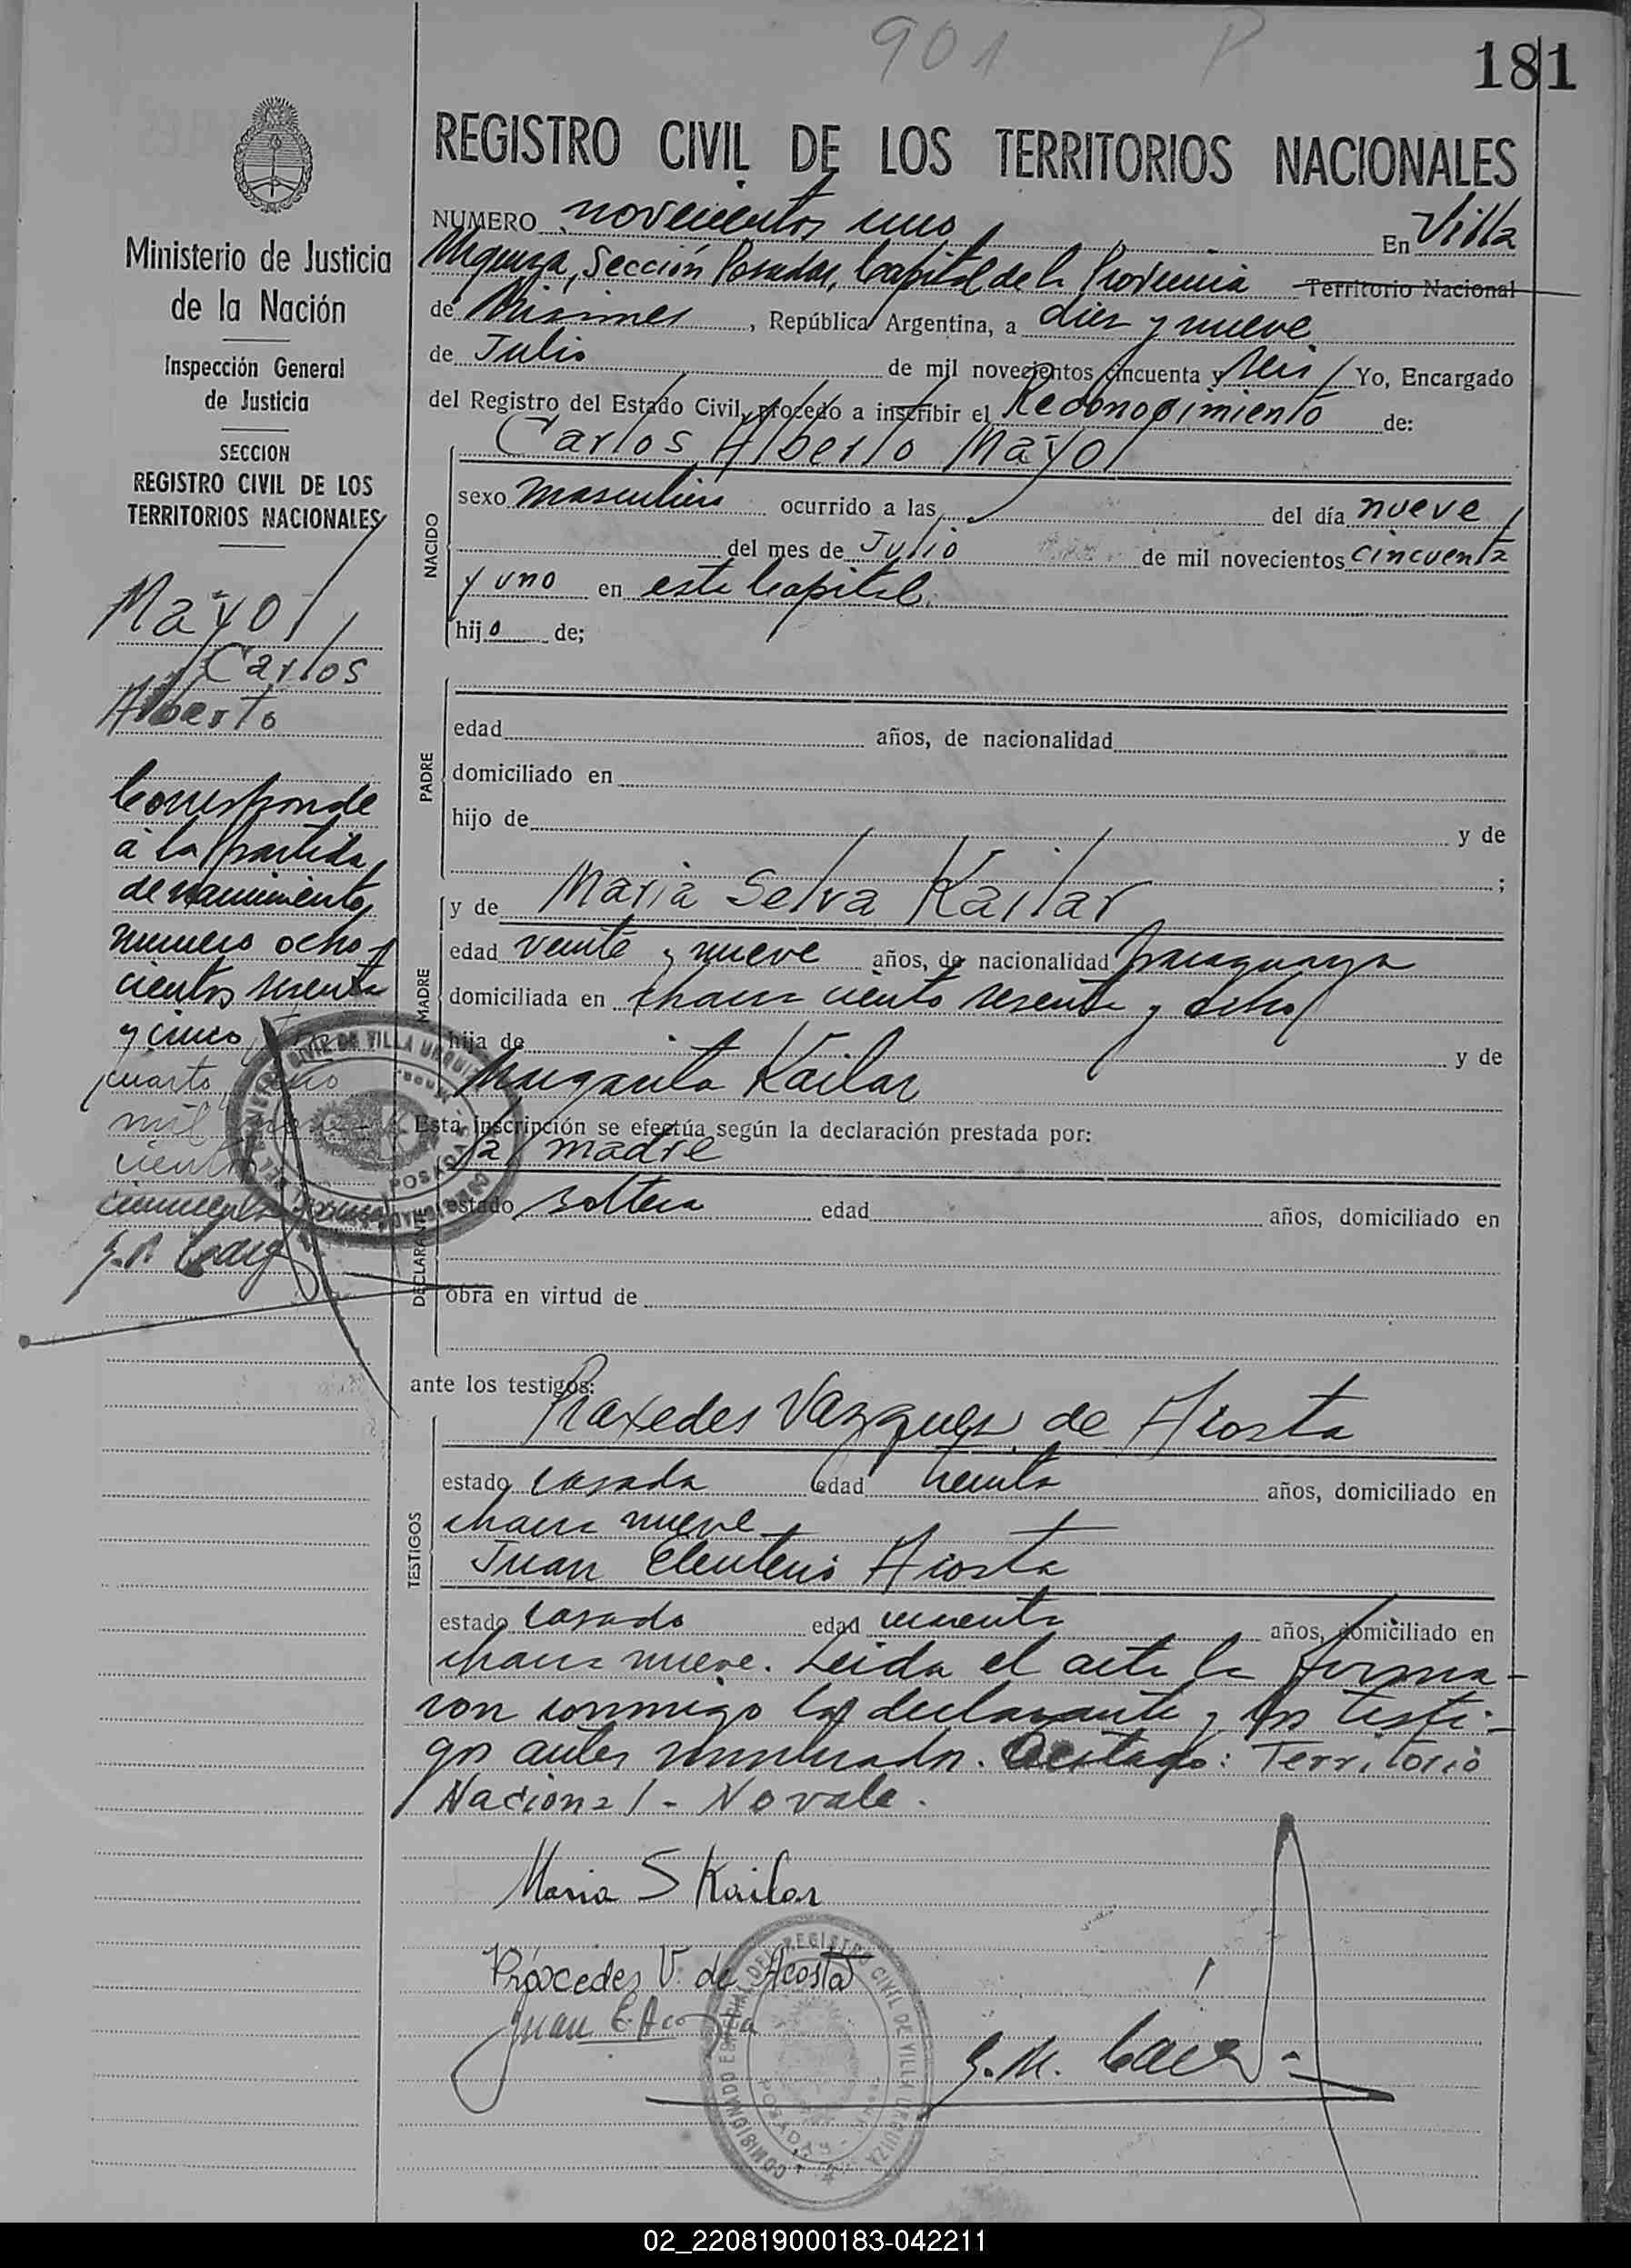 901 P
181
REGISTRO CIVIL DE LOS TERRITORIOS NACIONALES
NUMERO novecientos uno En Villa
Urquiza, Sección Posadas, Capital de la Provincia Territorio Nacional
de Misiones, República Argentina, a diez y nueve
de Julio de mil novecientos cincuenta y seis Yo, Encargado
del Registro del Estado Civil, procedo a inscribir el Reconocimiento de:
Carlos Alberto Mayol
NACIDO
sexo masculino ocurrido a las del día nueve
del mes de Julio de mil novecientos cincuenta
y uno en esta Capital.
hijo de;
PADRE
edad años, de nacionalidad
domiciliado en
hijo de y de
;
MADRE
y de Maria Selva Kailar
edad veinte y nueve años, de nacionalidad paraguaya
domiciliada en chacra ciento sesenta y ocho
hija de y de
Margarita Kailar
Esta inscripción se efectúa según la declaración prestada por:
DECLARANTE
la madre
estado soltera edad años, domiciliado en
obra en virtud de
ante los testigos:
TESTIGOS
Praxedes Vazquez de Acosta
estado casada edad treinta años, domiciliado en
chacra nueve
Juan Eleuterio Acosta
estado casado edad cuarenta años, domiciliado en
chacra nueve. Leida el acta la firma-
ron conmigo la declarante y los testi-
gos antes nombrados. Testado: Territorio
Nacional - No vale.
Maria S Kailar
Práxcedes V. de Acosta
Juan E. Acosta
COMISIONADO ESPECIAL DEL REGISTRO CIVIL DE VILLA URQUIZA
POSADAS
Ministerio de Justicia
de la Nación
Inspección General
de Justicia
SECCION
REGISTRO CIVIL DE LOS
TERRITORIOS NACIONALES
Mayol
Carlos
Alberto
Corresponde
a la partida
de nacimiento
numero ocho-
cientos sesenta
y cinco
cuarto
mil nove-
cientos
cincuenta
02_220819000183-042211